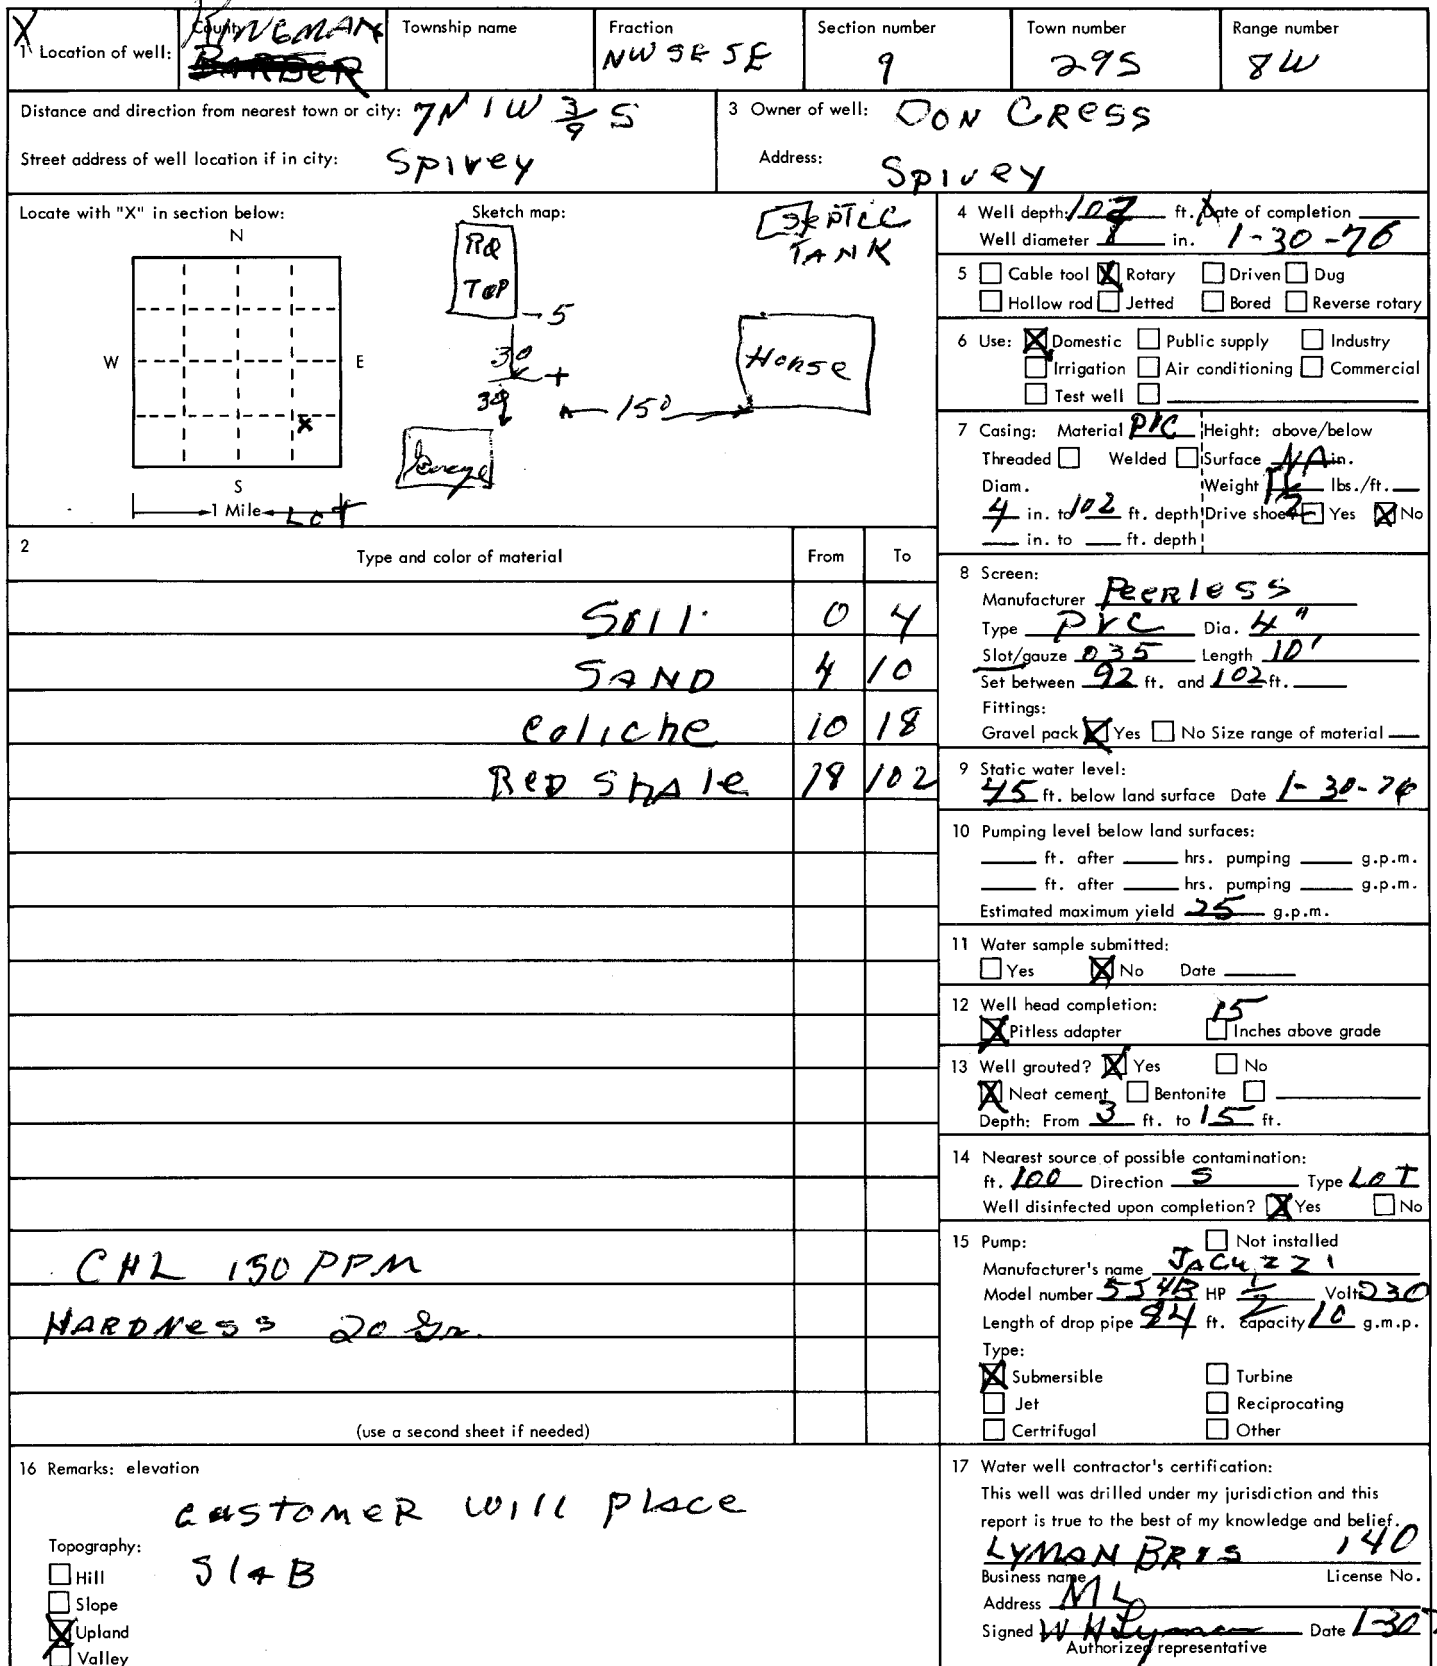 X
1 Location of well:
County KINGMAN
BARBER
Township name
Fraction
NW SE SE
Section number
9
Town number
29S
Range number
8W
Distance and direction from nearest town or city: 7N 1W 3/9 S
Street address of well location if in city: Spivey
3 Owner of well: DON CRESS
Address: Spivey
Locate with "X" in section below:
N
W E
x
S
1 Mile
Lot
Sketch map:
SEPTIC
TANK
5
30
150
House
Garage
4 Well depth: 102 ft. Date of completion
Well diameter in. 1-30-76
5 Cable tool X Rotary Driven Dug
Hollow rod Jetted Bored Reverse rotary
6 Use: X Domestic Public supply Industry
Irrigation Air conditioning Commercial
Test well
7 Casing: Material PVC Height: above/below
Threaded Welded Surface NA in.
Diam. Weight lbs./ft.
4 in. to 102 ft. depth Drive shoe? Yes X No
in. to ft. depth
2
Type and color of material From To
Soil 0 4
SAND 4 10
Caliche 10 18
RED SHALE 18 102
CHL 150 PPM
HARDNESS 20 Gr.
(use a second sheet if needed)
8 Screen:
Manufacturer Peerless
Type PVC Dia. 4"
Slot/gauze 035 Length 10'
Set between 92 ft. and 102 ft.
Fittings:
Gravel pack X Yes No Size range of material
9 Static water level:
45 ft. below land surface Date 1-30-76
10 Pumping level below land surfaces:
ft. after hrs. pumping g.p.m.
ft. after hrs. pumping g.p.m.
Estimated maximum yield 25 g.p.m.
11 Water sample submitted:
Yes X No Date
12 Well head completion: 15
X Pitless adapter Inches above grade
13 Well grouted? X Yes No
X Neat cement Bentonite
Depth: From 3 ft. to 15 ft.
14 Nearest source of possible contamination:
ft. 100 Direction S Type LOT
Well disinfected upon completion? X Yes No
15 Pump: Not installed
Manufacturer's name JACUZZI
Model number 5S4B HP 1/2 Volts 230
Length of drop pipe 84 ft. capacity 10 g.m.p.
Type:
X Submersible Turbine
Jet Reciprocating
Certrifugal Other
16 Remarks: elevation
customer will place
SlaB
Topography:
Hill
Slope
X Upland
Valley
17 Water well contractor's certification:
This well was drilled under my jurisdiction and this
report is true to the best of my knowledge and belief.
LYMAN BROS 140
Business name License No.
Address ML
Signed W H Lyman Date 1-30
Authorized representative